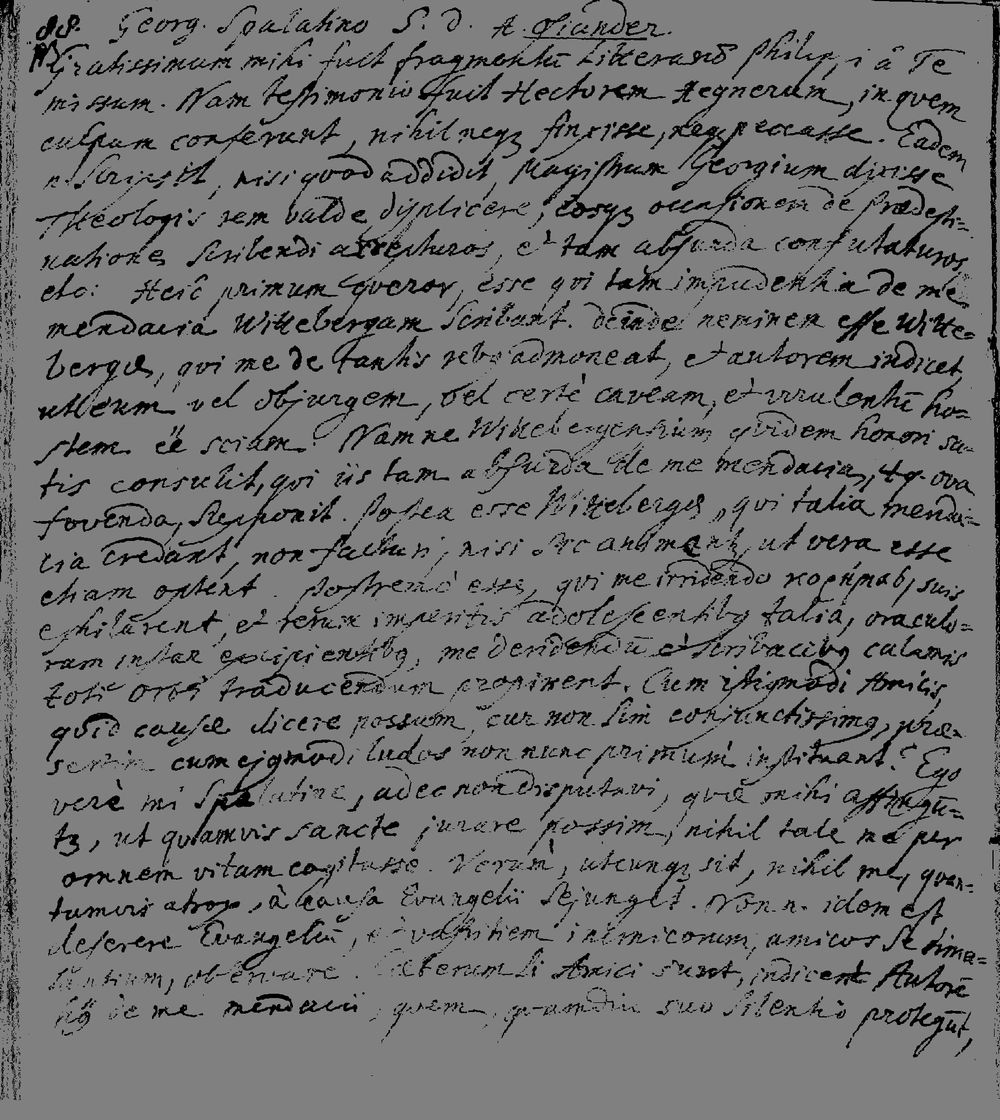 88. Georg. Spalatino S. d. A. Osiander.
Gratissimum mihi fuit fragmentū litterarū Philippi à Te
missum. Nam testimonio fuit Hectorem Aegnerum, in quem
culpam conferunt, nihil neqz finxisse, neqz peccasse. Eadem
n. scripsit, nisi quod addidit, Magistrum Georgium dixisse
Theologis rem valde displicere, eosqz occasionem de Prædesti=
natione scribendi arrepturos, et tam absurda confutaturos,
etc: Heic primum queror, esse qui tam impudentia de me
mendacia Wittebergam scribant. deinde neminem esse Witte=
bergæ, qui me de tantis rebq admoneat, et autorem indicet,
ut eum vel objurgem, vel certè caveam, et virulentū ho=
stem eē sciam. Nam ne Wittebergensium quidem honori sa=
tis consulit, qui iis tam absurda de me mendacia, tq. ova
fovenda, supponit. Postea esse Wittebergæ, qui talia menda=
cia credant, non facturi, nisi sic animati, ut vera esse
etiam optent. Postremò esse, qui me irridendo suis
exhilarent, et rerum imperitis adolescentibq talia, oraculo=
rum instar excipientibq, me deridendū et scribacibq calamis
toti orbi traducendum propinent. Cum istiqmodi Amicis,
quid causæ dicere possum, cur non sim conjunctissimq, præ=
sertim cum ejqmodi ludos non nunc primum instituant? Ego
verè mi Spalatine, adeo non disputavi, quæ mihi affingū=
tz, ut quamvis sancte jurare possim, nihil tale me per
omnem vitam cogitasse. Verum, utcunqz sit, nihil me, quan=
tumvis atrox, à causa Evangelii sejunget. Non n. idem est
deserere Evangeliū, et vafritiem inimicorum, amicos se
observare. Cæterum si Amici sunt, indicent Autorē
hq de me mendacii, quem, quamdiu suo silentio protegūt,